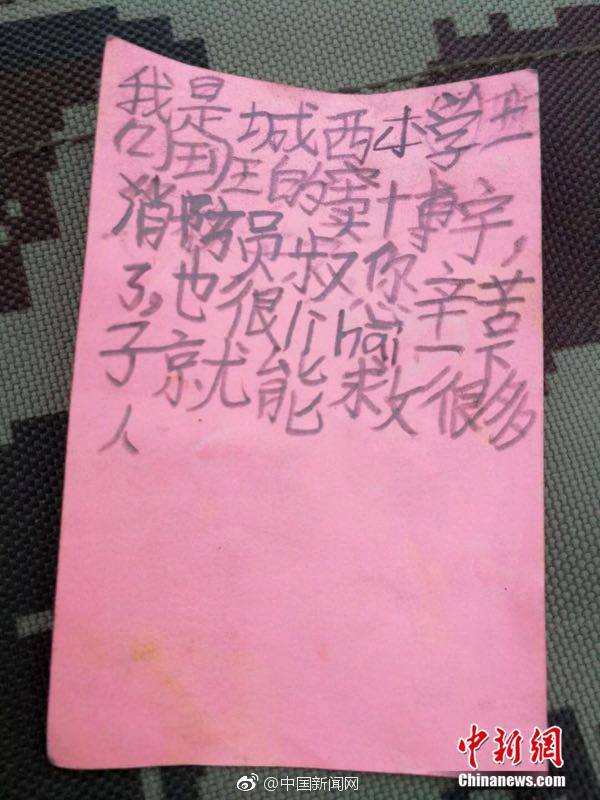 我是城西小学
班的窦博宇,
消防员叔你辛苦
了,也很lìhai一下
子就能救很多
人
@中国新闻网
中新网
Chinanews.com